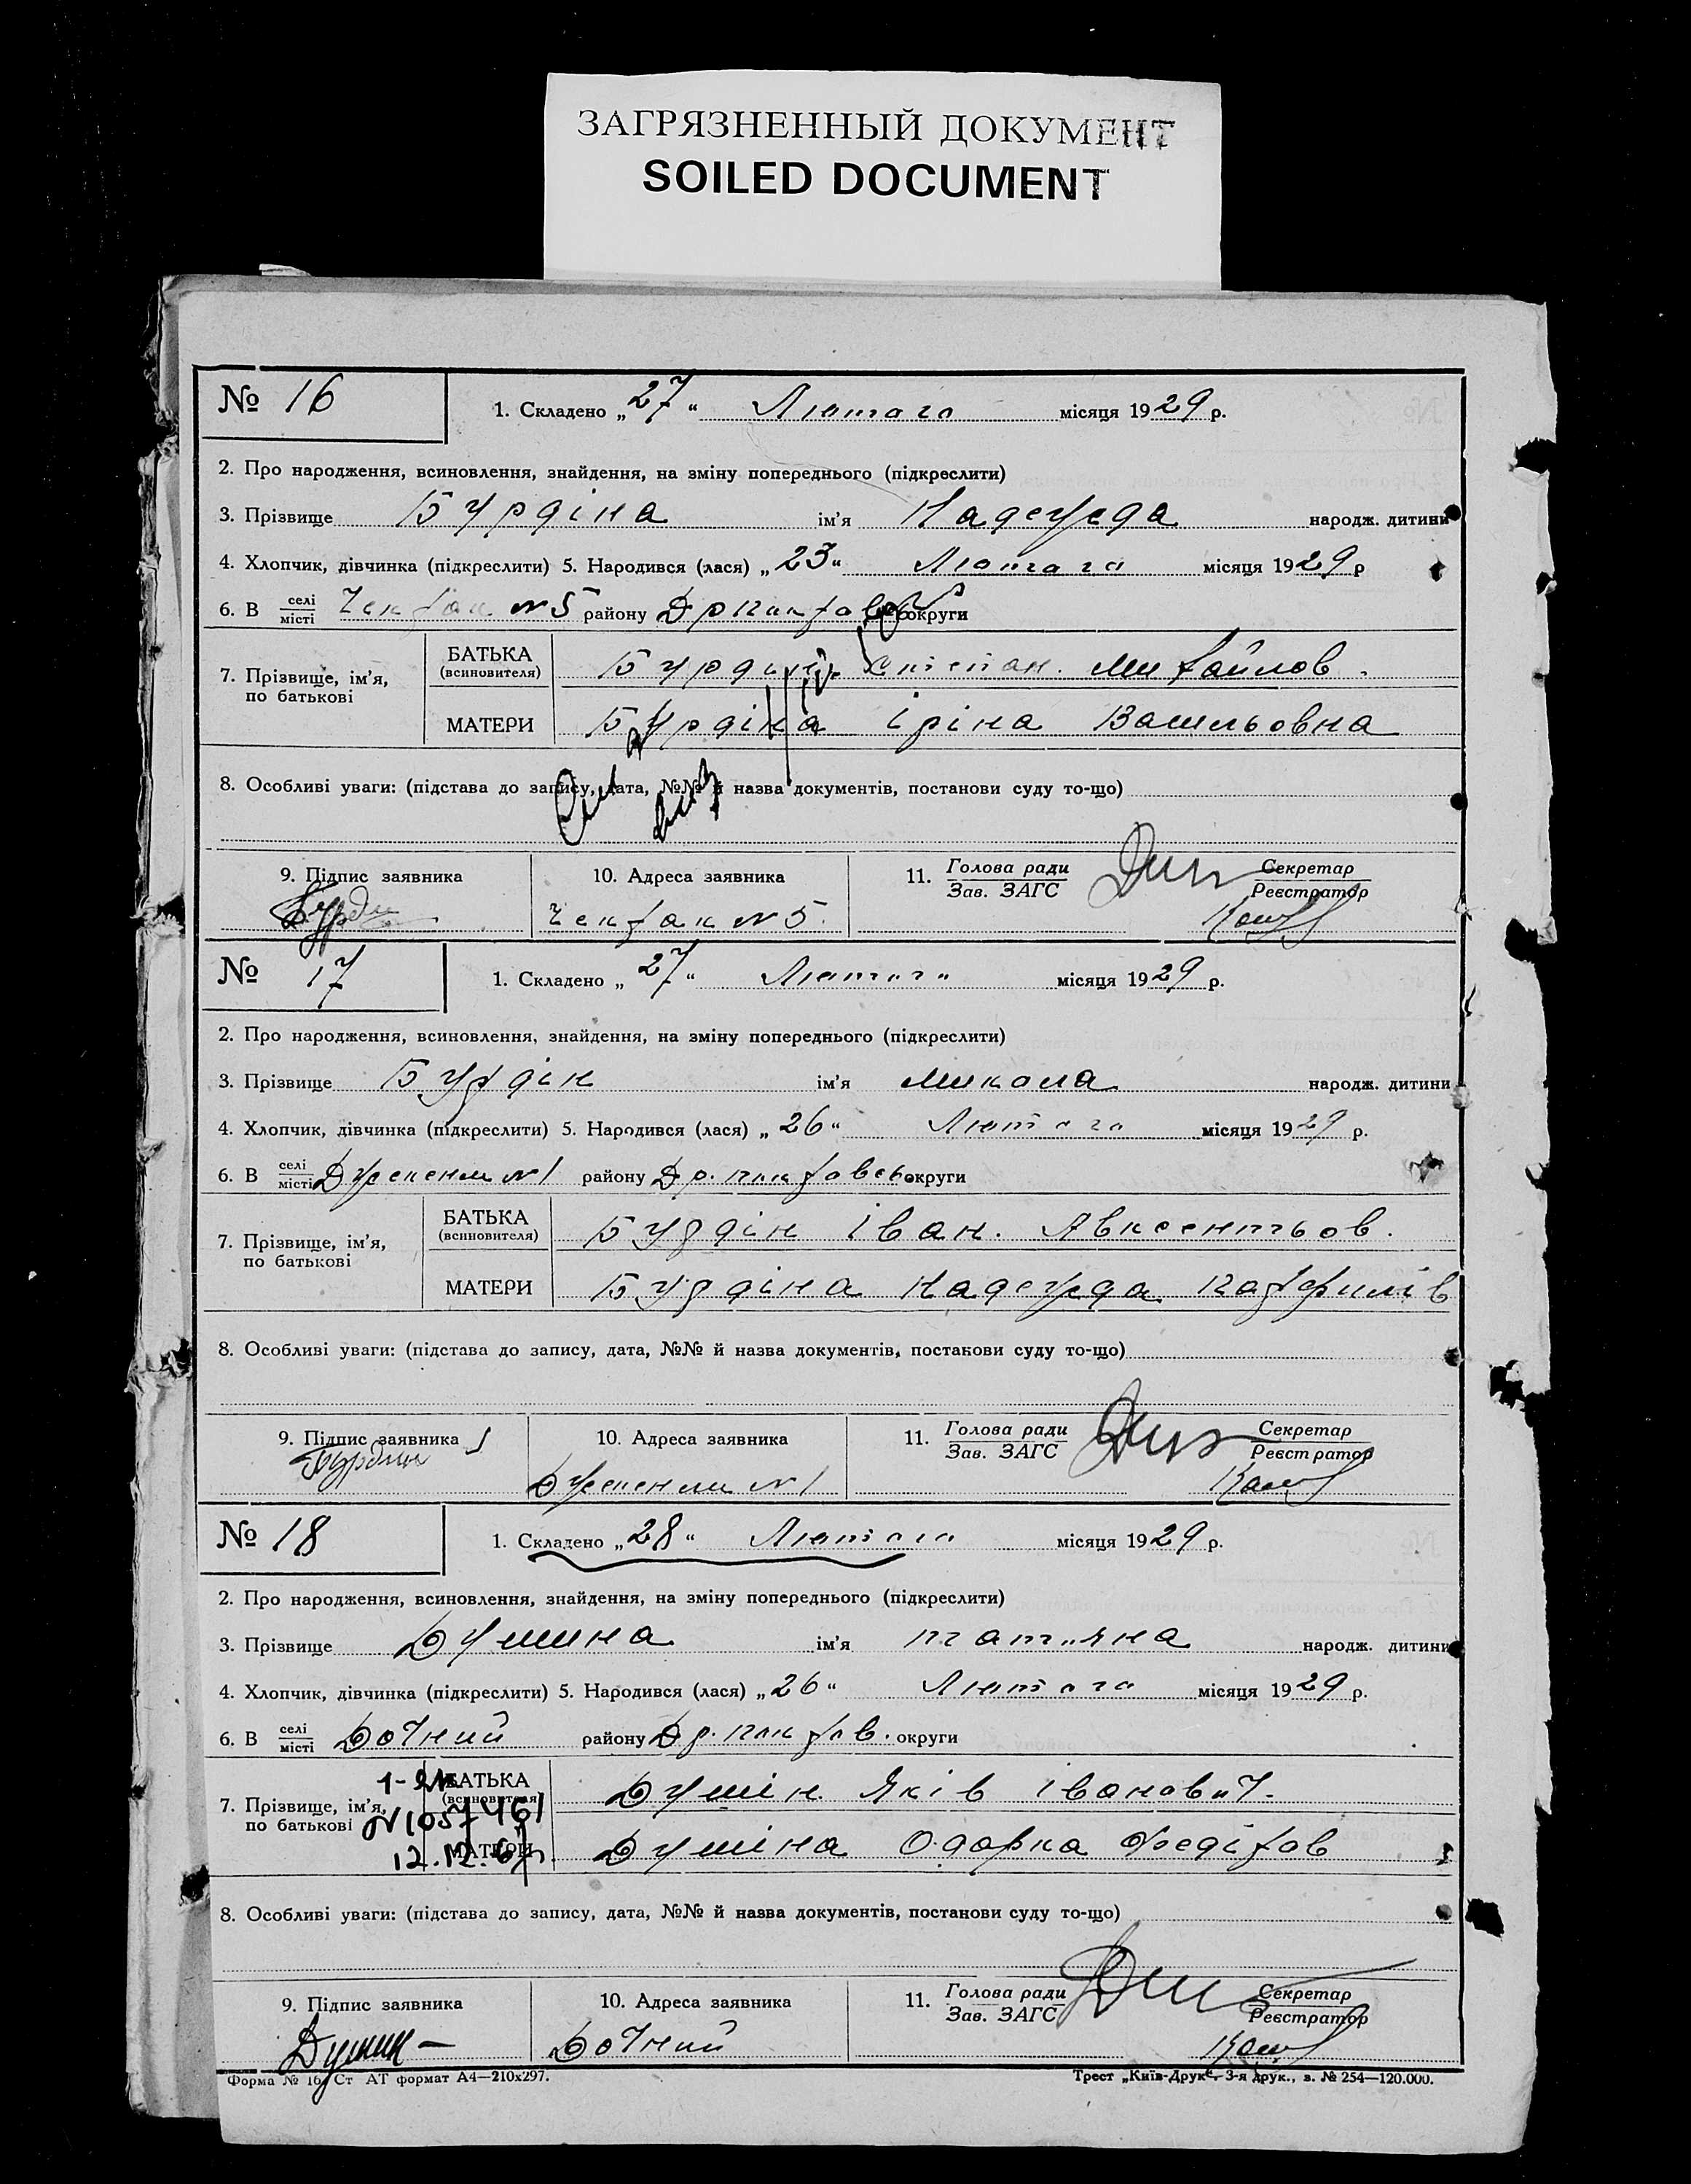 ЗАГРЯЗНЕННЫЙ ДОКУМЕНТ
SOILED DOCUMENT
№ 16
1. Складено „27“ Лютого місяця 1929 р.
2. Про народження, всиновлення, знайдення, на зміну попереднього (підкреслити)
3. Прізвище Бурдіна ім'я Надежда народж. дитини
4. Хлопчик, дівчинка (підкреслити) 5. Народився (лася) „23“ Лютого місяця 1929 р
6. В селі місті Чекфак N 5 району округи
7. Прізвище, ім'я, по батькові
БАТЬКА (всиновителя) Степан. Михайлов.
МАТЕРИ Бурдіна Іріна Васильовна
8. Особливі уваги: (підстава до запису, дата, №№ й назва документів, постанови суду то-що)
9. Підпис заявника
10. Адреса заявника
11. Голова ради Зав. ЗАГС
Секретар Реєстратор
Чекфак N 5.
№ 17
1. Складено „27“ Лютого місяця 1929 р.
2. Про народження, всиновлення, знайдення, на зміну попереднього (підкреслити)
3. Прізвище Бурдін ім'я Микола народж. дитини
4. Хлопчик, дівчинка (підкреслити) 5. Народився (лася) „26“ Лютого місяця 1929 р.
6. В селі місті N 1 району округи
7. Прізвище, ім'я, по батькові
БАТЬКА (всиновителя) Бурдін Іван. Авксентьов.
МАТЕРИ Бурдіна Надежда
8. Особливі уваги: (підстава до запису, дата, №№ й назва документів, постанови суду то-що)
9. Підпис заявника
10. Адреса заявника
11. Голова ради Зав. ЗАГС
Секретар Реєстратор
Бурдин
N 1
№ 18
1. Складено „28“ Лютого місяця 1929 р.
2. Про народження, всиновлення, знайдення, на зміну попереднього (підкреслити)
3. Прізвище Душина ім'я Татьяна народж. дитини
4. Хлопчик, дівчинка (підкреслити) 5. Народився (лася) „26“ Лютого місяця 1929 р.
6. В селі місті Дочний району округи
7. Прізвище, ім'я, по батькові
БАТЬКА (всиновителя) Душін Яків Іванович.
N 1057461
12.12.67р.
МАТЕРИ Душіна Одарка Федітов
8. Особливі уваги: (підстава до запису, дата, №№ й назва документів, постанови суду то-що)
9. Підпис заявника
10. Адреса заявника
11. Голова ради Зав. ЗАГС
Секретар Реєстратор
Душин
Дочний
Форма № 16. Ст АТ формат А4—210х297.
Трест „Київ-Друк“. 3-я друк., з. № 254—120.000.